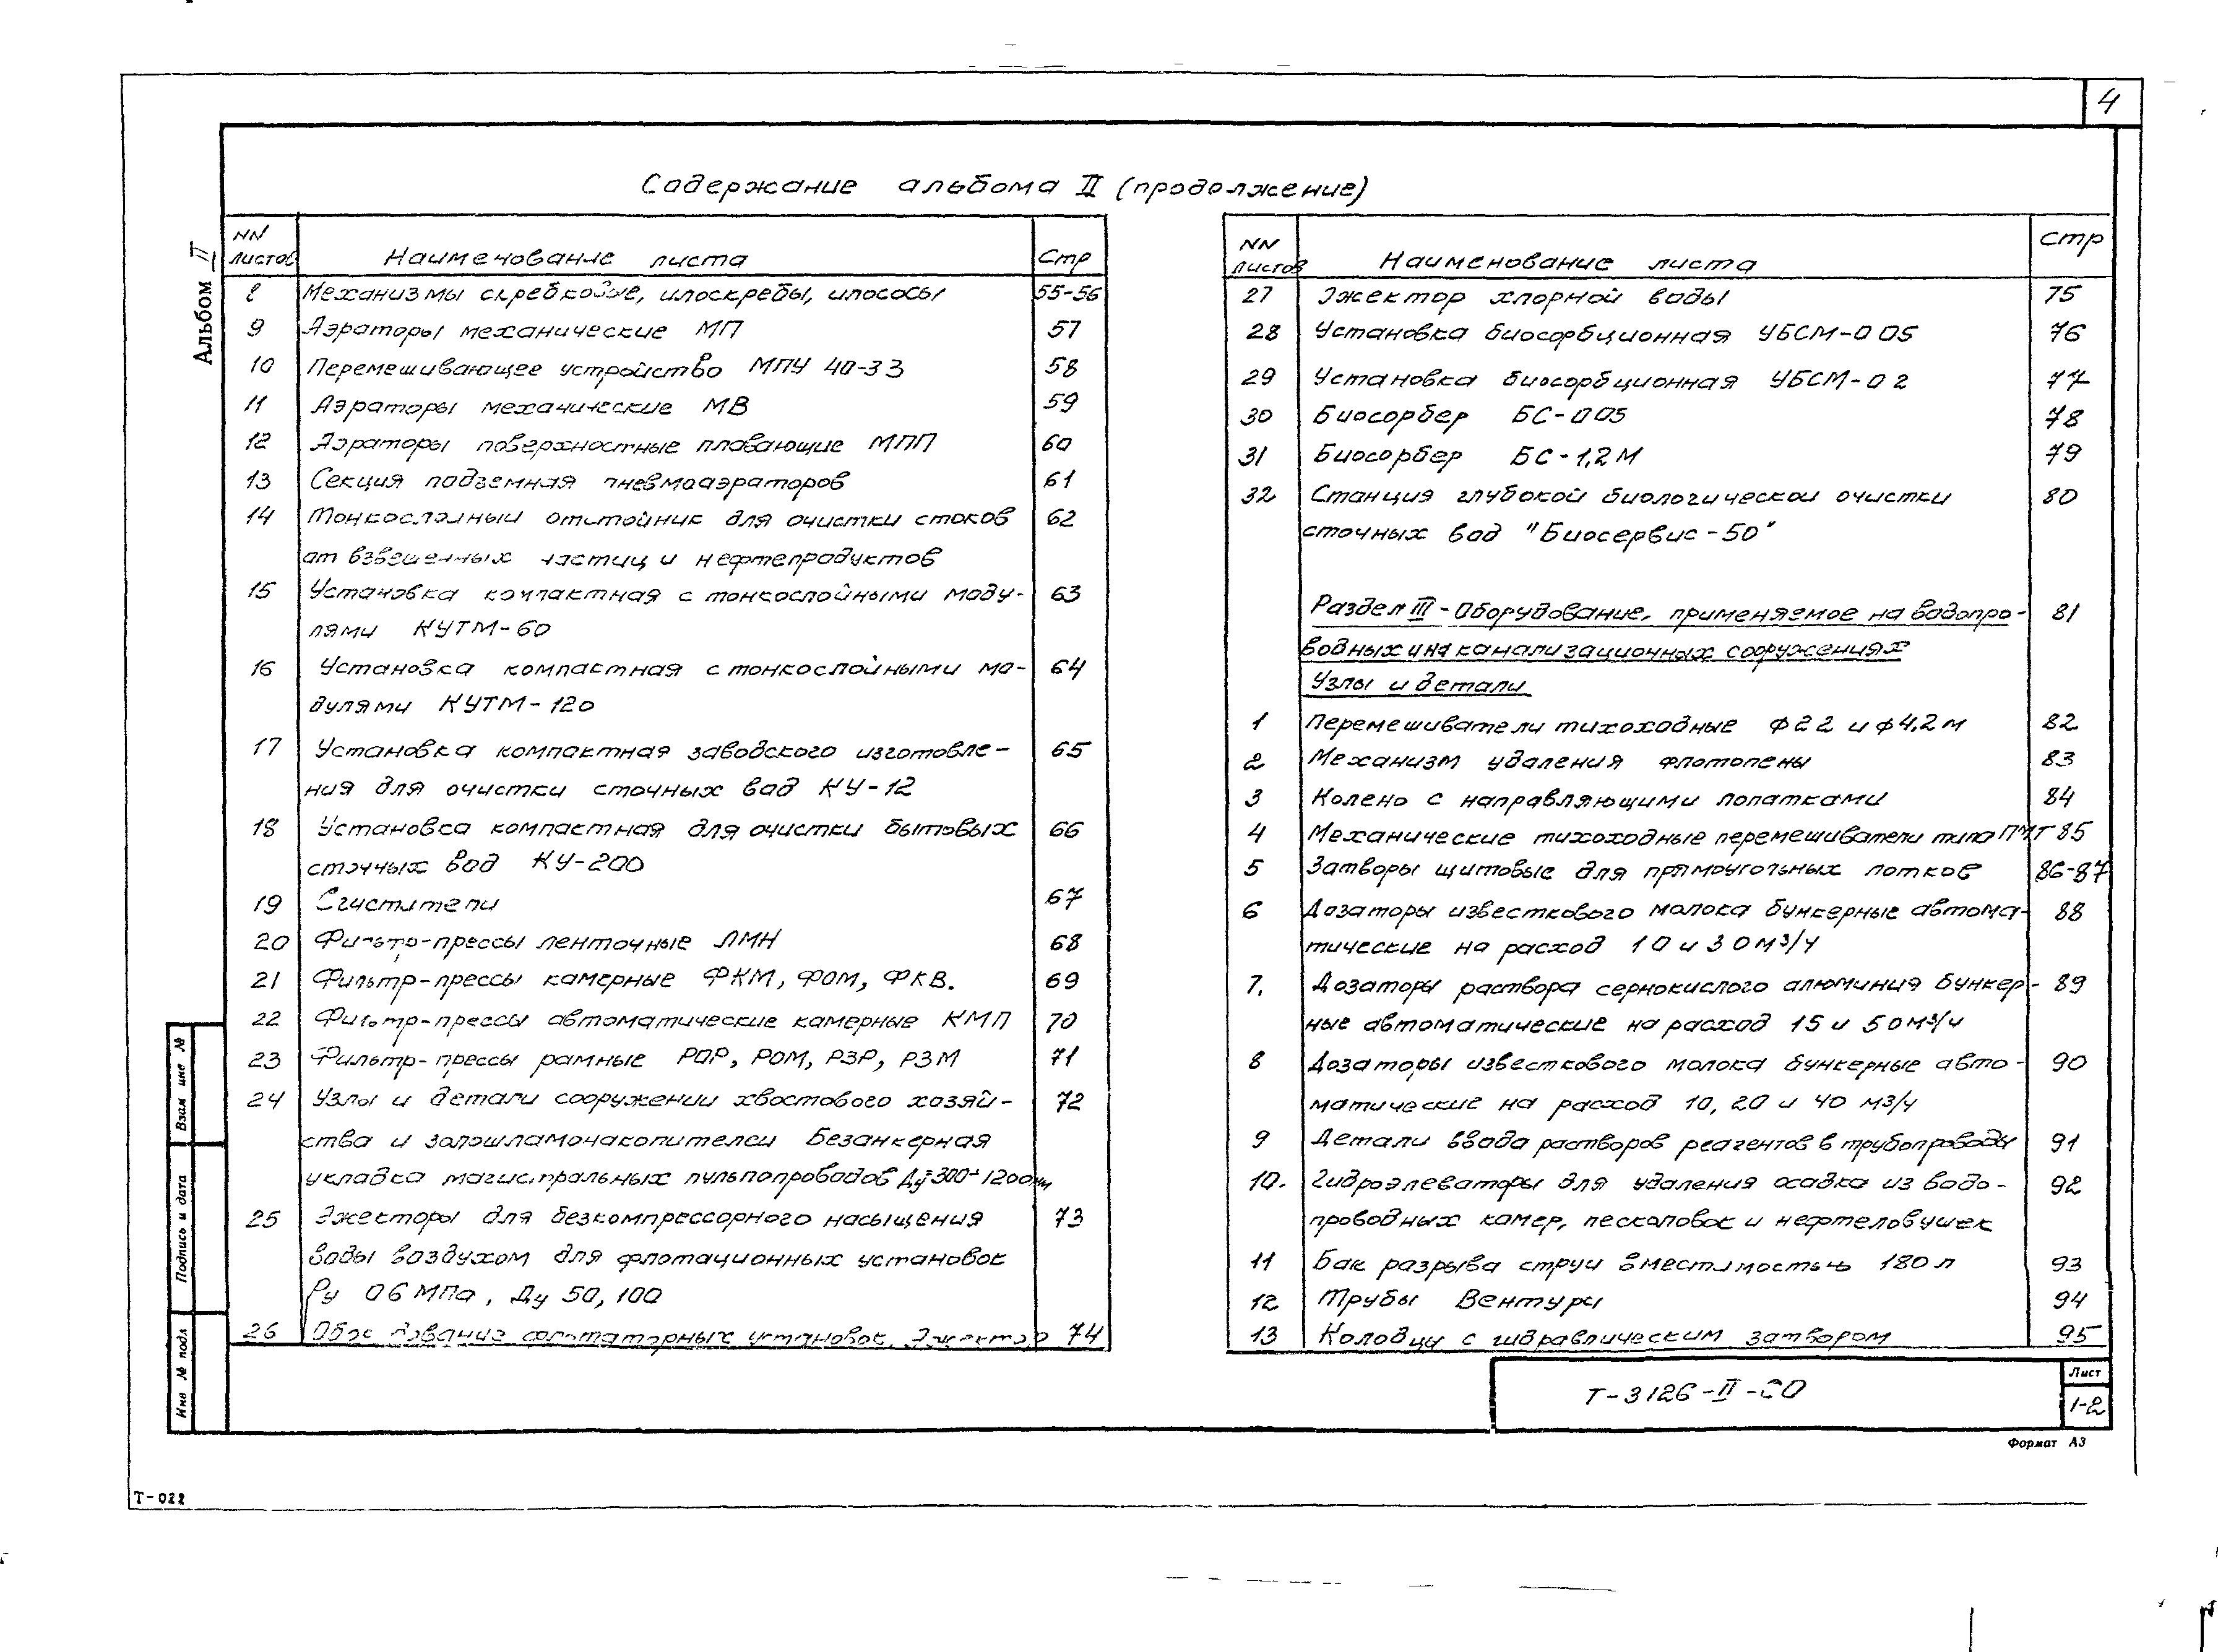 4
Содержание альбома II (продолжение)
Альбом II
NN листов Наименование листа Стр
8 Механизмы скребковые, илоскребы, илососы 55-56
9 Аэраторы механические МП 57
10 Перемешивающее устройство МПУ 40-33 58
11 Аэраторы механические МВ 59
12 Аэраторы поверхностные плавающие МПП 60
13 Секция подземная пневмоаэраторов 61
14 Тонкослойный отстойник для очистки стоков 62
от взвешенных частиц и нефтепродуктов
15 Установка компактная с тонкослойными моду- 63
лями КУТМ-60
16 Установка компактная с тонкослойными мо- 64
дулями КУТМ-120
17 Установка компактная заводского изготовле- 65
ния для очистки сточных вод КУ-12
18 Установка компактная для очистки бытовых 66
сточных вод КУ-200
19 Сгустители 67
20 Фильтр-прессы ленточные ЛМН 68
21 Фильтр-прессы камерные ФКМ, ФОМ, ФКВ. 69
22 Фильтр-прессы автоматические камерные КМП 70
23 Фильтр-прессы рамные РОР, РОМ, РЗР, РЗМ 71
24 Узлы и детали сооружении хвостового хозяй- 72
ства и золошламонакопителеи Безанкерная
укладка магистральных пульпопроводов Ду 300÷1200мм
25 Эжекторы для безкомпрессорного насыщения 73
воды воздухом для флотационных установок
Ру 06 МПа, Ду 50, 100
26 Оборудование флотаторных установок. Эжектор 74
NN листов Наименование листа Стр
27 Эжектор хлорной воды 75
28 Установка биосорбционная УБСМ-005 76
29 Установка биосорбционная УБСМ-02 77
30 Биосорбер БС-005 78
31 Биосорбер БС-1,2М 79
32 Станция глубокой биологическои очистки 80
сточных вод "Биосервис-50"
Раздел III - Оборудование, применяемое на водопро- 81
водных и на канализационных сооружениях
Узлы и детали
1 Перемешиватели тихоходные ф22 и ф4,2м 82
2 Механизм удаления флотопены 83
3 Колено с направляющими лопатками 84
4 Механические тихоходные перемешиватели типа ПМТ 85
5 Затворы щитовые для прямоугольных лотков 86-87
6 Дозаторы известкового молока бункерные автома- 88
тические на расход 10 и 30м³/ч
7. Дозаторы раствора сернокислого алюминия бункер- 89
ные автоматические на расход 15 и 50м³/ч
8 Дозаторы известкового молока бункерные авто- 90
матические на расход 10, 20 и 40 м3/ч
9 Детали ввода растворов реагентов в трубопроводы 91
10. Гидроэлеваторы для удаления осадка из водо- 92
проводных камер, песколовок и нефтеловушек
11 Бак разрыва струи вместимостью 180л 93
12 Трубы Вентури 94
13 Колодцы с гидравлическим затвором 95
Взам инв №
Подпись и дата
Инв № подл
Т-3126-II-СО
Лист
1-2
Формат А3
Т-022